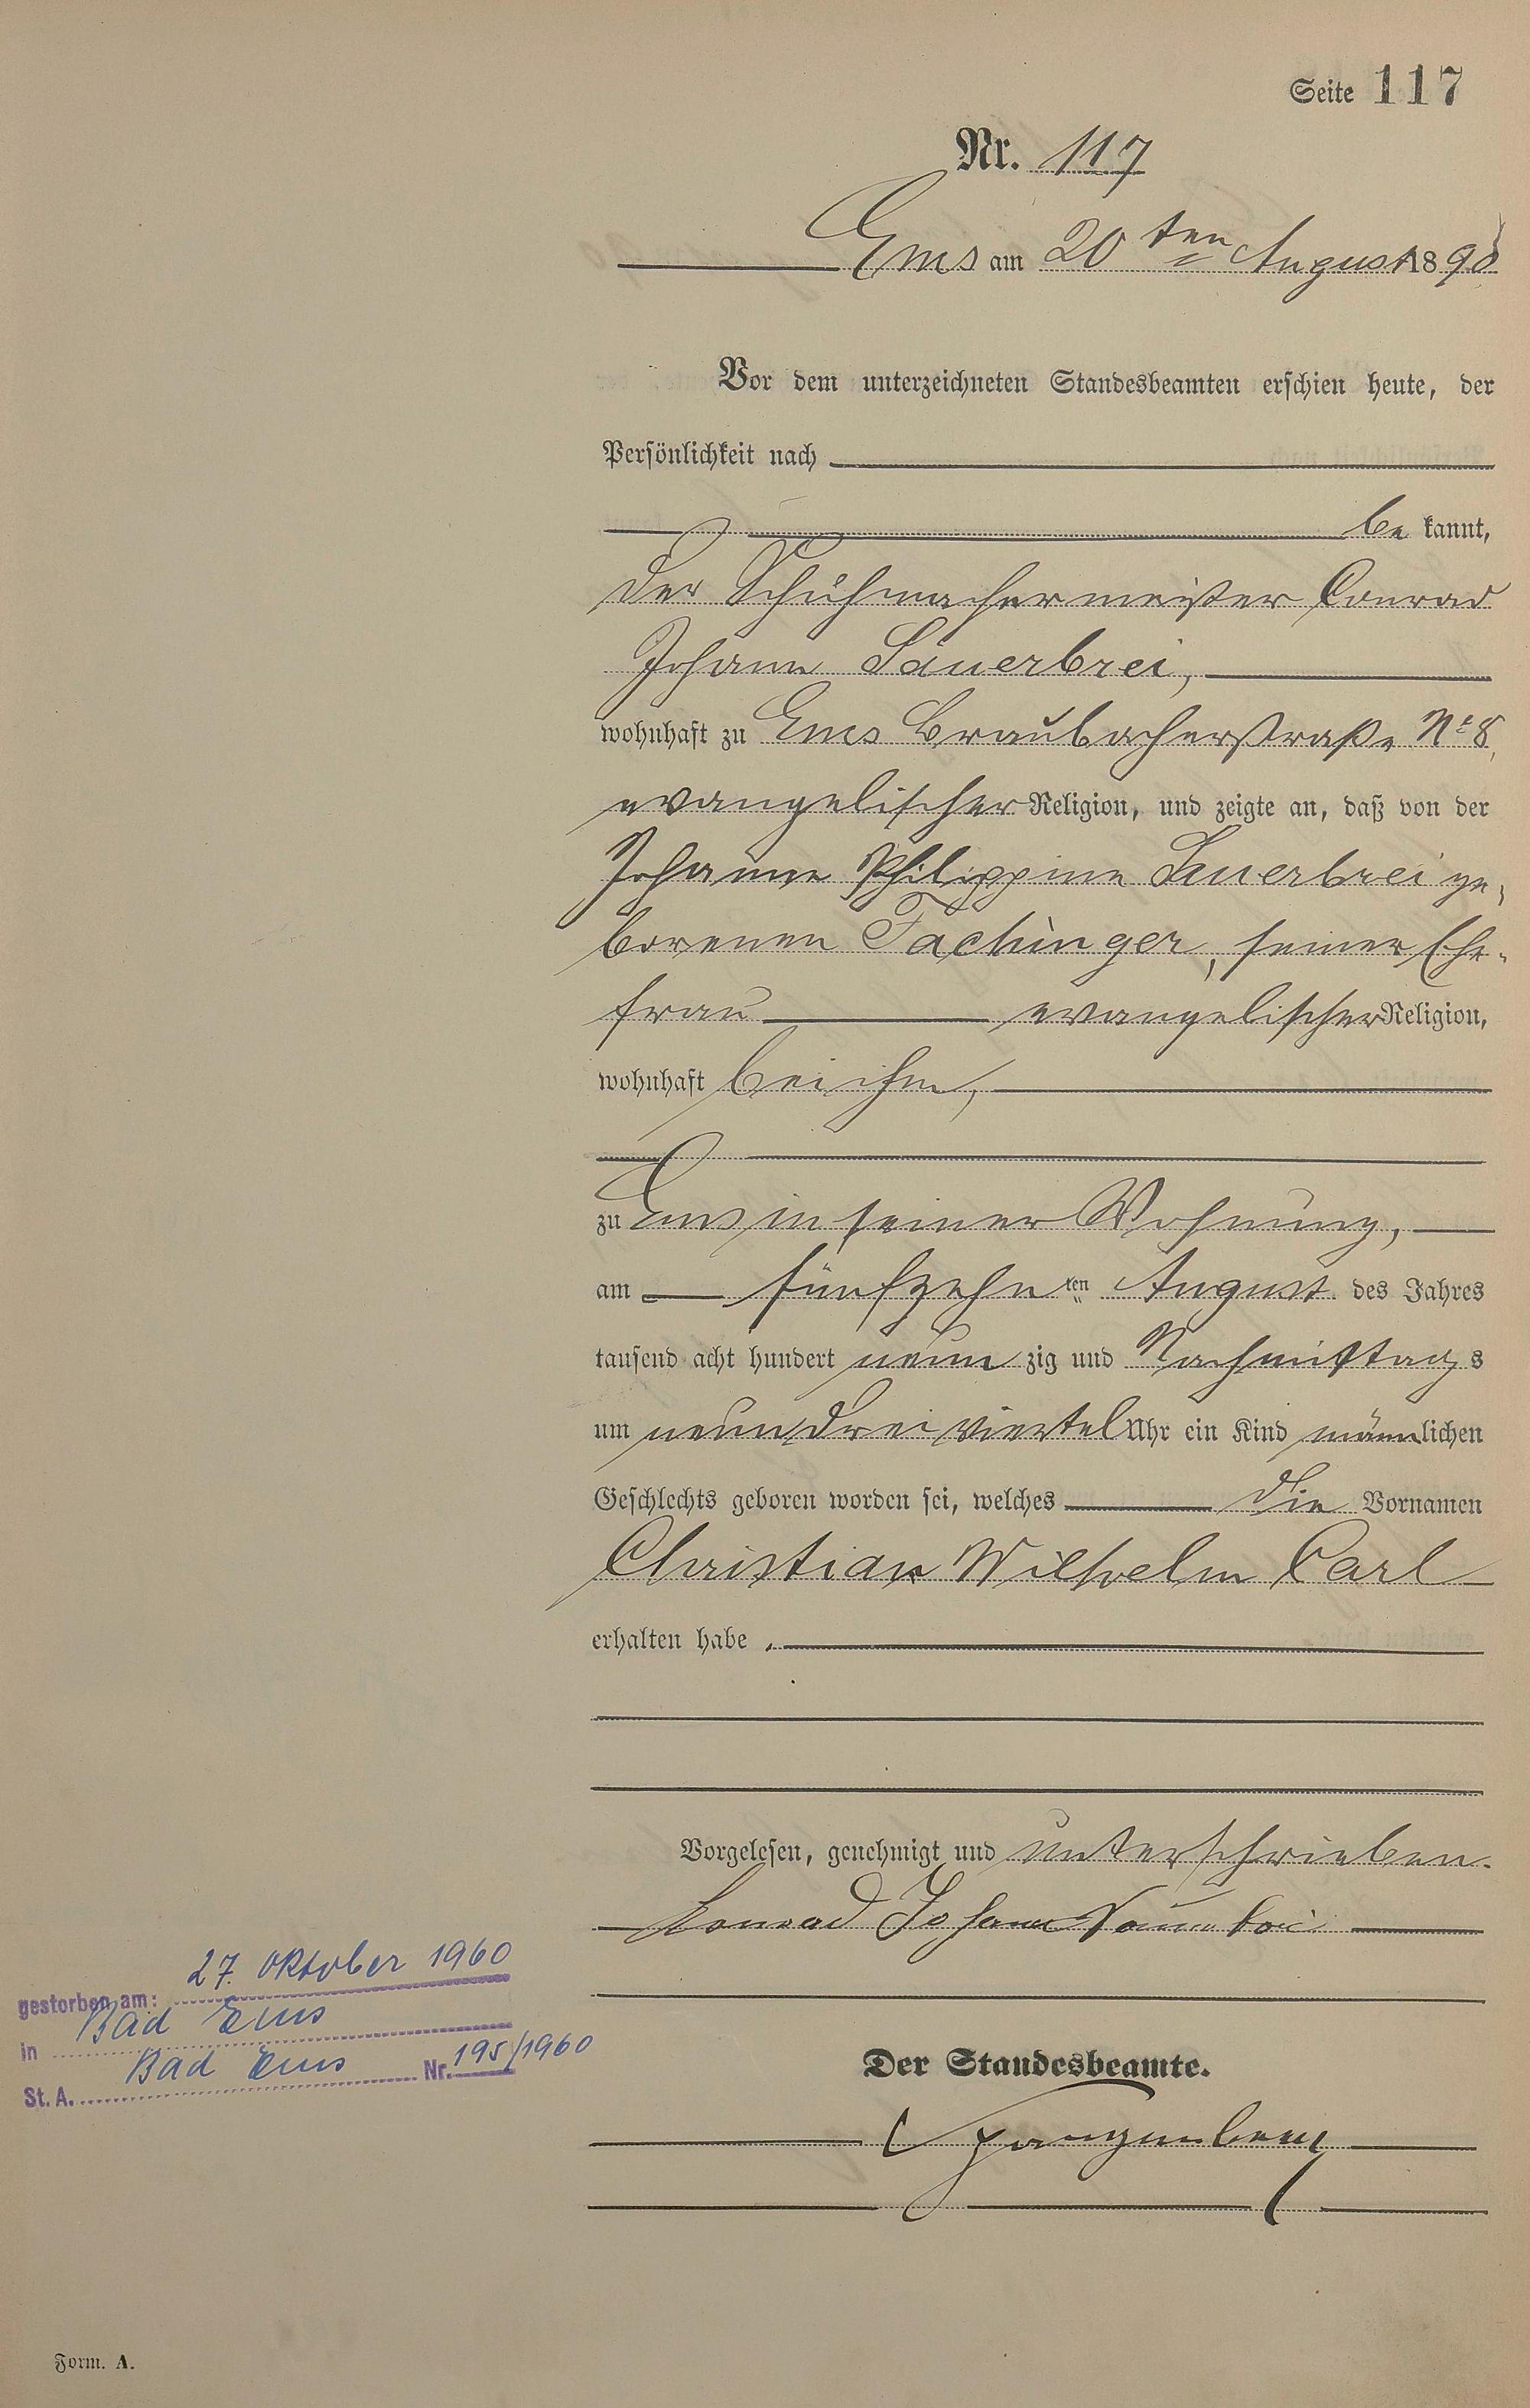 Seite 117
Nr. 117
Ems am 20ten August 1890
Vor dem unterzeichneten Standesbeamten erschien heute, der
Persönlichkeit nach
be kannt,
der Schuhmachermeister Conrad
Johann Sauerbrei,
wohnhaft zu Ems Braubacherstraße No 8,
evangelischer Religion, und zeigte an, daß von der
Johanne Philippine Sauerbrei ge-
borenen Fachinger, seiner Ehe-
frau evangelischer Religion,
wohnhaft bei ihm,
zu Ems in seiner Wohnung,
am fünfzehnten August des Jahres
tausend acht hundert neun zig und Nachmittags
um neun dreiviertel Uhr ein Kind männlichen
Geschlechts geboren worden sei, welches die Vornamen
Christian Wilhelm Carl
erhalten habe.
Vorgelesen, genehmigt und unterschrieben.
Konrad Johann Sauerbrei
gestorben am: 27. Oktober 1960
in Bad Ems
St. A. Bad Ems Nr. 195/1960
Der Standesbeamte.
Form. A.